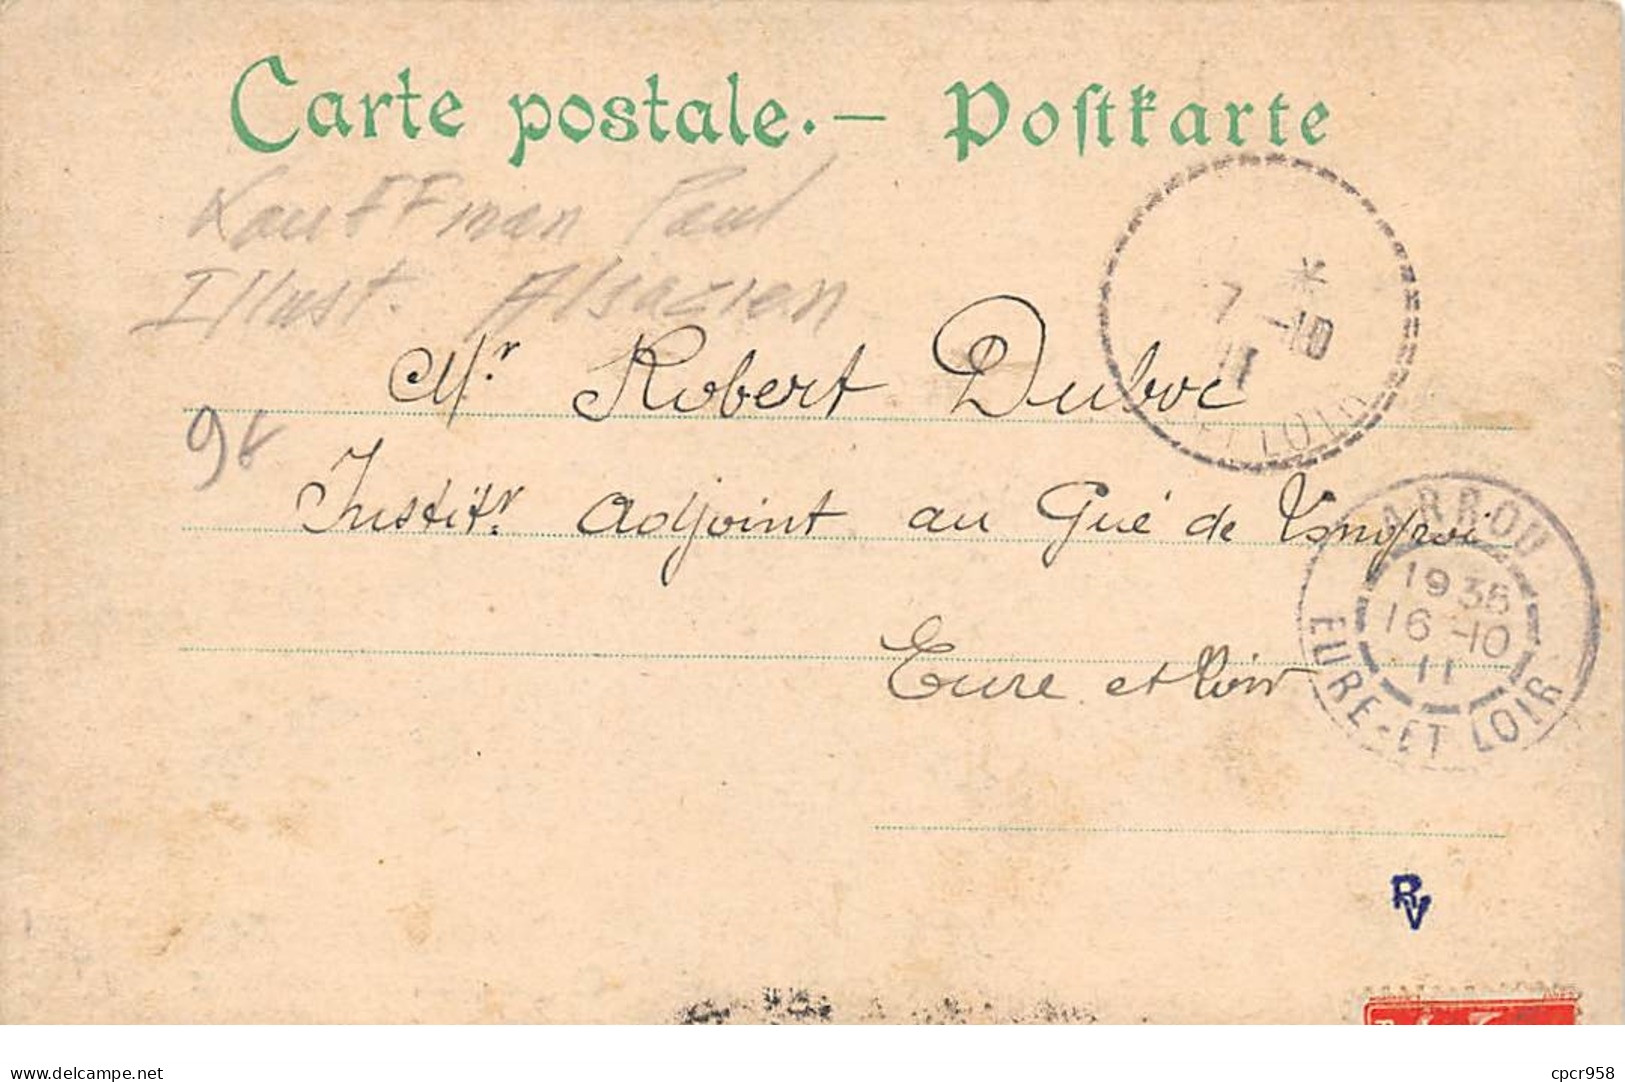 Carte postale. — Postkarte
Kauffman Paul
Illust. Alsacien
Mr Robert Duboc
Institr adjoint au Gué de Longroi
Eure et Loir
* 7 -10 11
ET LOIR
ARROU
1935
16 -10
11
EURE-ET LOIR
RV
www.delcampe.net
cpcr958